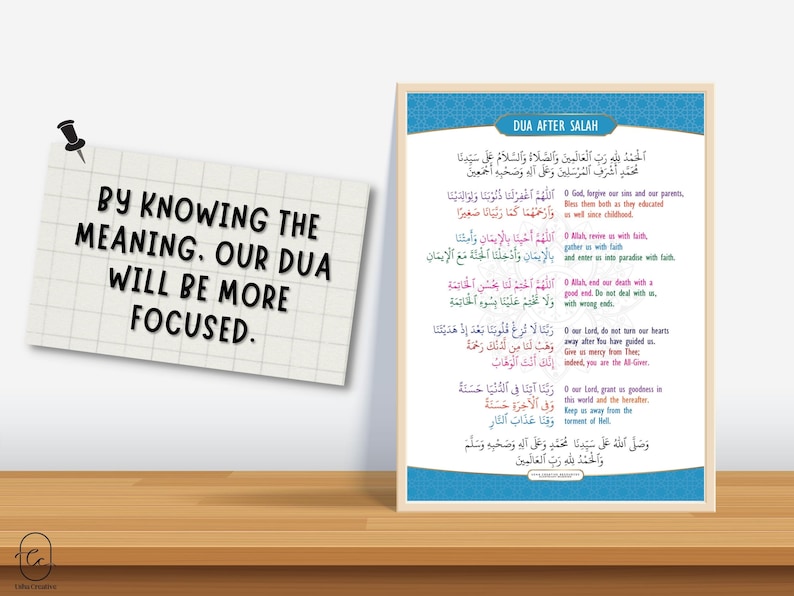 BY KNOWING THE
MEANING, OUR DUA
WILL BE MORE
FOCUSED.
DUA AFTER SALAH
الْحَمْدُ لِلَّهِ رَبِّ الْعَالَمِينَ وَالصَّلَاةُ وَالسَّلَامُ عَلَى سَيِّدِنَا
مُحَمَّدٍ أَشْرَفِ الْمُرْسَلِينَ وَعَلَى آلِهِ وَصَحْبِهِ أَجْمَعِينَ
اَللَّهُمَّ اغْفِرْلَنَا ذُنُوْبَنَا وَلِوَالِدَيْنَا
وَارْحَمْهُمَا كَمَا رَبَّيَانَا صَغِيْرًا
O God, forgive our sins and our parents,
Bless them both as they educated
us well since childhood.
اَللَّهُمَّ أَحْيِنَا بِالْإِيمَانِ وَأَمِتْنَا
بِالْإِيمَانِ وَأَدْخِلْنَا الْجَنَّةَ مَعَ الْإِيمَانِ
O Allah, revive us with faith,
gather us with faith
and enter us into paradise with faith.
اَللَّهُمَّ اخْتِمْ لَنَا بِحُسْنِ الْخَاتِمَةِ
وَلَا تَخْتِمْ عَلَيْنَا بِسُوءِ الْخَاتِمَةِ
O Allah, end our death with a
good end. Do not deal with us,
with wrong ends.
رَبَّنَا لَا تُزِغْ قُلُوْبَنَا بَعْدَ إِذْ هَدَيْتَنَا
وَهَبْ لَنَا مِن لَّدُنْكَ رَحْمَةً
إِنَّكَ أَنْتَ الْوَهَّابُ
O our Lord, do not turn our hearts
away after You have guided us.
Give us mercy from Thee;
indeed, you are the All-Giver.
رَبَّنَا آتِنَا فِي الدُّنْيَا حَسَنَةً
وَفِي الْآخِرَةِ حَسَنَةً
وَقِنَا عَذَابَ النَّارِ
O our Lord, grant us goodness in
this world and the hereafter.
Keep us away from the
torment of Hell.
وَصَلَّى اللَّهُ عَلَى سَيِّدِنَا مُحَمَّدٍ وَعَلَى آلِهِ وَصَحْبِهِ وَسَلَّمَ
وَالْحَمْدُ لِلَّهِ رَبِّ الْعَالَمِينَ
Usha Creative